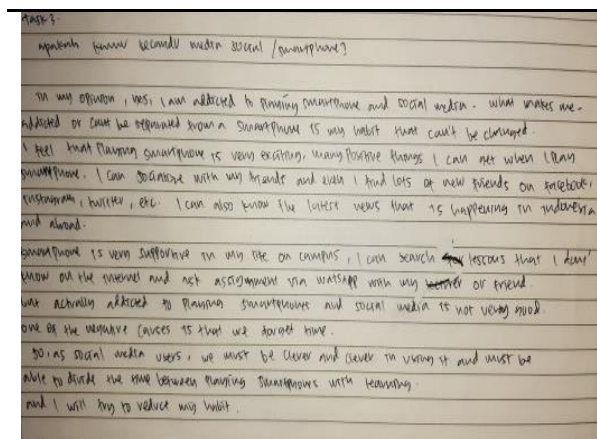 Task 3.
apakah kamu becandu media social / smartphone?
in my opinion, yes, I am addicted to playing smartphone and social media. what makes me
addicted or cant be separated from a smartphone is my habit that can't be changed.
I feel that playing smartphone is very exciting, many positive things I can get when I play
smartphone. I can socialize with my friends and even I find lots of new friends on facebook,
instagram, twitter, etc. I can also know the latest news that is happening in indonesia
and abroad.
smartphone is very supportive in my life on campus, I can search lescous that I dont'
know on the internet and ask assignment via watsApp with my or friend.
but actually addicted to playing smartphones and social media is not very good.
one of the negative causes is that we forget time.
so, as social media users, we must be clever and clever in using it and must be
able to divide the time between playing smartphones with learning.
and I will try to reduce my habit.